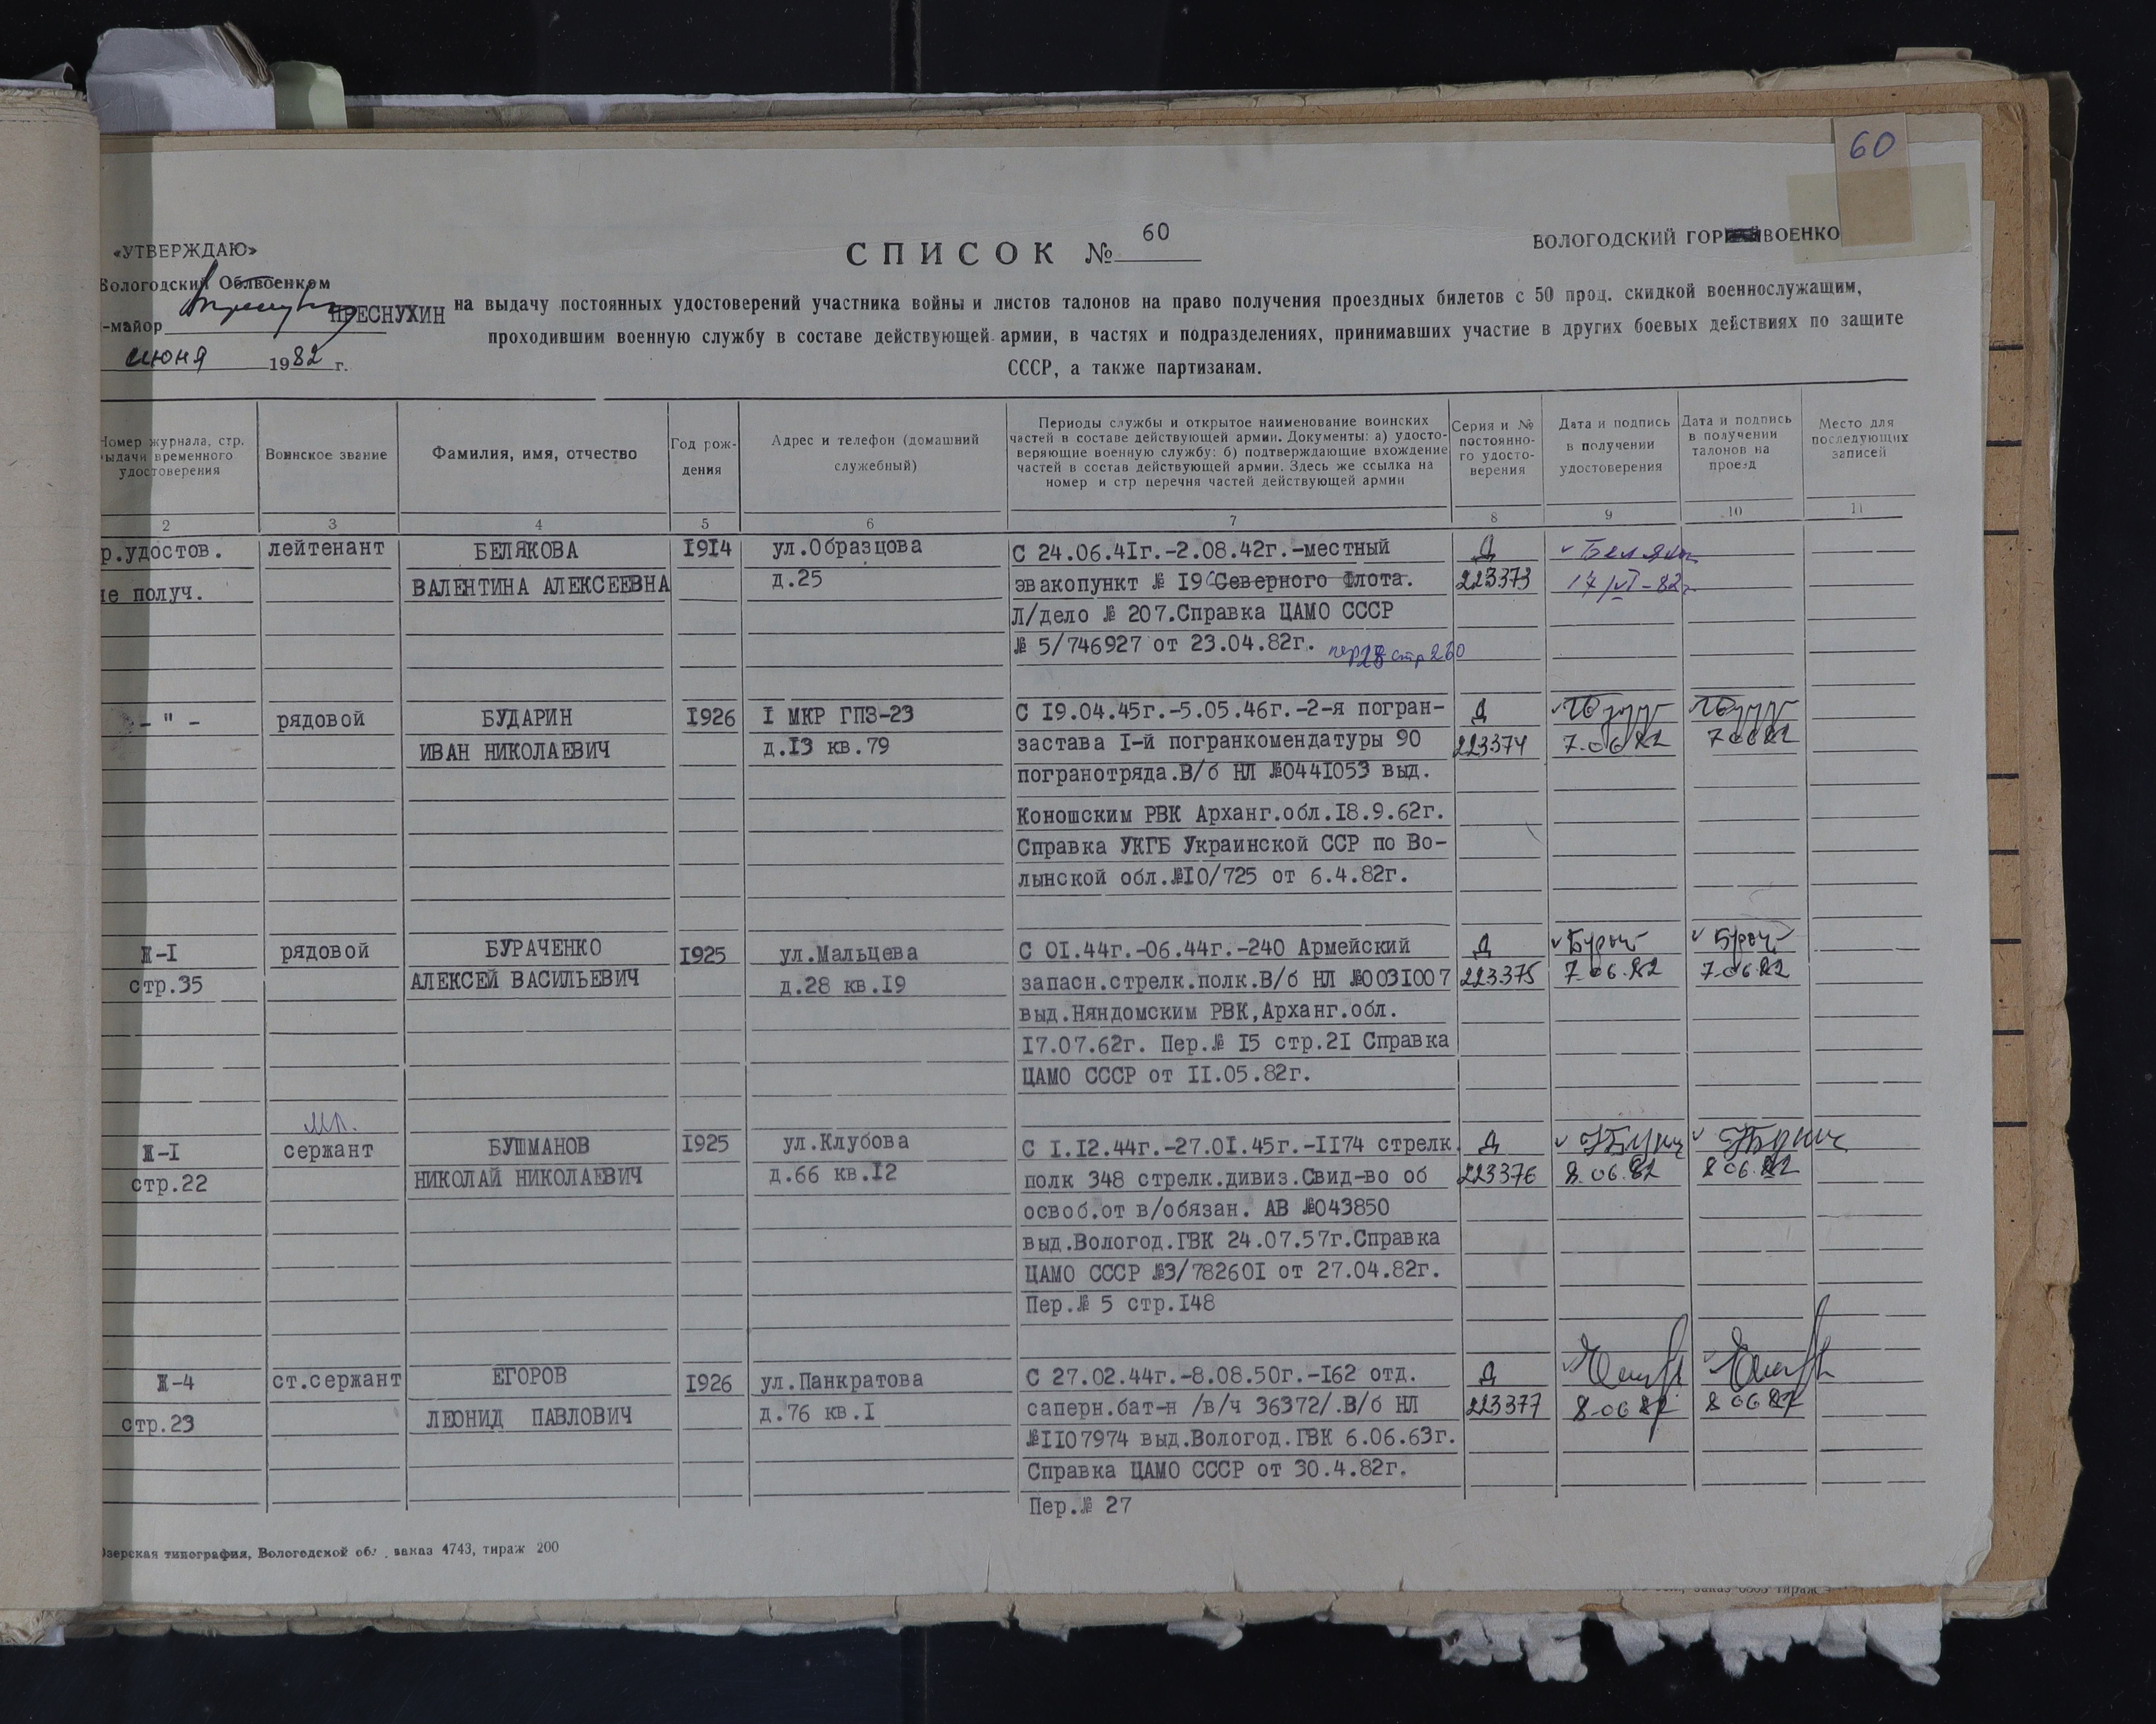 60
«УТВЕРЖДАЮ»
Вологодский Облвоенком
-майор ПРЕСНУХИН
июня 1982 г.
СПИСОК № 60
ВОЛОГОДСКИЙ ГОР ВОЕНКО
на выдачу постоянных удостоверений участника войны и листов талонов на право получения проездных билетов с 50 проц. скидкой военнослужащим,
проходившим военную службу в составе действующей армии, в частях и подразделениях, принимавших участие в других боевых действиях по защите
СССР, а также партизанам.
Номер журнала, стр.
выдачи временного
удостоверения
Воинское звание
Фамилия, имя, отчество
Год рож-
дения
Адрес и телефон (домашний
служебный)
Периоды службы и открытое наименование воинских
частей в составе действующей армии. Документы: а) удосто-
веряющие военную службу: б) подтверждающие вхождение
частей в состав действующей армии. Здесь же ссылка на
номер и стр перечня частей действующей армии
Серия и №
постоянно-
го удосто-
верения
Дата и подпись
в получении
удостоверения
Дата и подпись
в получении
талонов на
проезд
Место для
последующих
записей
2 3 4 5 6 7 8 9 10 11
р.удостов.
не получ.
лейтенант
БЕЛЯКОВА
ВАЛЕНТИНА АЛЕКСЕЕВНА
I9I4
ул.Образцова
д.25
С 24.06.4Iг.-2.08.42г.-местный
эвакопункт № I9 Северного Флота.
Л/дело № 207.Справка ЦАМО СССР
№ 5/746927 от 23.04.82г. пер 28 стр 260
Д
223373
Беляк
17/VI-82г
-"-
рядовой
БУДАРИН
ИВАН НИКОЛАЕВИЧ
I926
I МКР ГПЗ-23
д.I3 кв.79
С I9.04.45г.-5.05.46г.-2-я погран-
застава I-й погранкомендатуры 90
погранотряда.В/б НЛ №044I053 выд.
Коношским РВК Арханг.обл.I8.9.62г.
Справка УКГБ Украинской ССР по Во-
лынской обл.№I0/725 от 6.4.82г.
Д
223374
7.06.82
7.06.82
Ж-I
стр.35
рядовой
БУРАЧЕНКО
АЛЕКСЕЙ ВАСИЛЬЕВИЧ
I925
ул.Мальцева
д.28 кв.I9
С 0I.44г.-06.44г.-240 Армейский
запасн.стрелк.полк.В/б НЛ №003I007
выд.Няндомским РВК,Арханг.обл.
I7.07.62г. Пер.№ I5 стр.2I Справка
ЦАМО СССР от II.05.82г.
Д
223375
7.06.82
7.06.82
Ж-I
стр.22
мл.
сержант
БУШМАНОВ
НИКОЛАЙ НИКОЛАЕВИЧ
I925
ул.Клубова
д.66 кв.I2
С I.I2.44г.-27.0I.45г.-II74 стрелк.
полк 348 стрелк.дивиз.Свид-во об
освоб.от в/обязан. АВ №043850
выд.Вологод.ГВК 24.07.57г.Справка
ЦАМО СССР №3/78260I от 27.04.82г.
Пер.№ 5 стр.I48
Д
223376
8.06.82
8.06.82
Ж-4
стр.23
ст.сержант
ЕГОРОВ
ЛЕОНИД ПАВЛОВИЧ
I926
ул.Панкратова
д.76 кв.I
С 27.02.44г.-8.08.50г.-I62 отд.
саперн.бат-н /в/ч 36372/.В/б НЛ
№II07974 выд.Вологод.ГВК 6.06.63г.
Справка ЦАМО СССР от 30.4.82г.
Пер.№ 27
Д
223377
8.06.82
8.06.82
озерская типография, Вологодской обл., заказ 4743, тираж 200